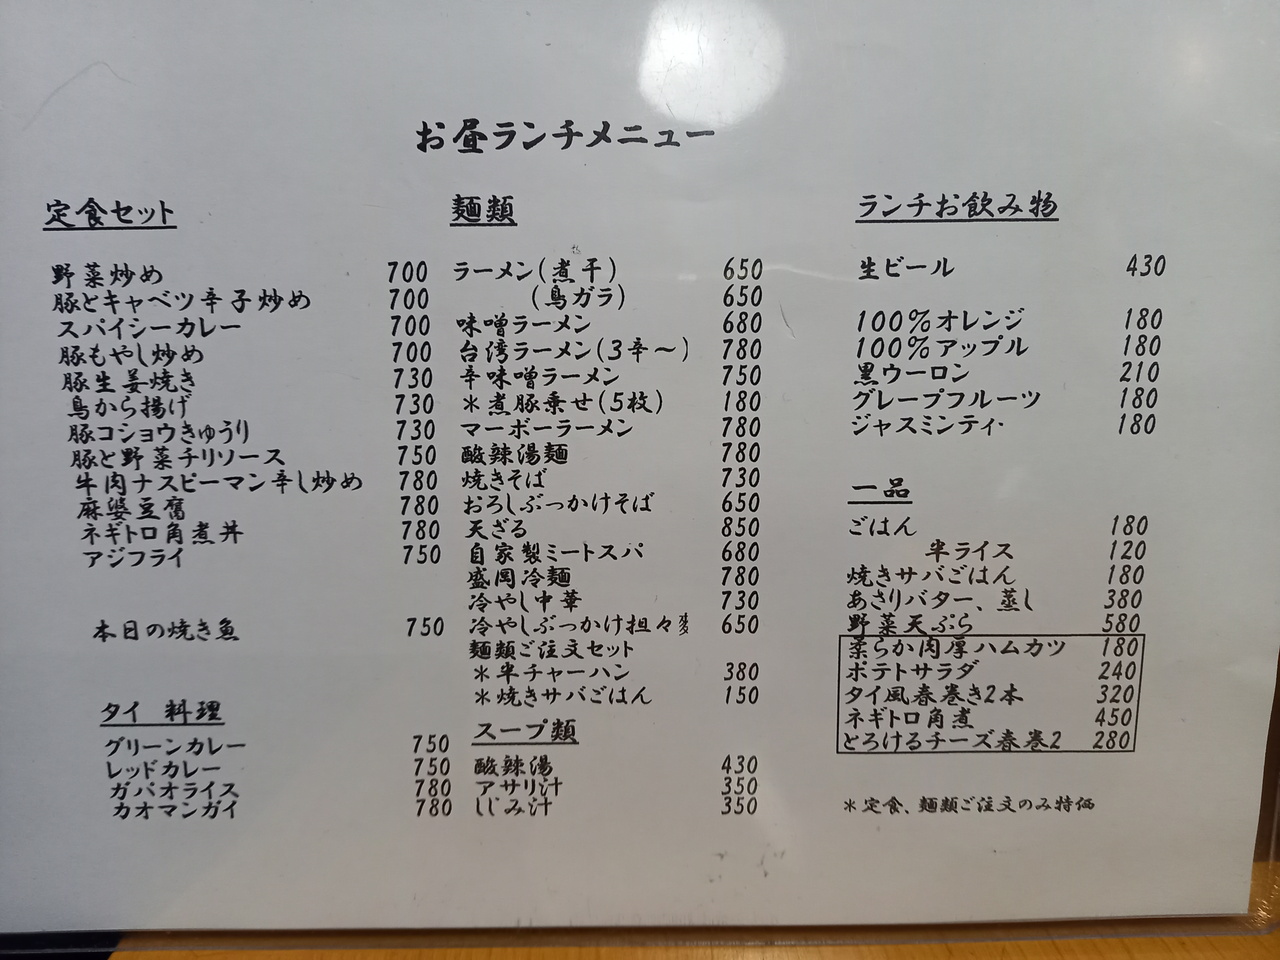 お昼ランチメニュー
定食セット
野菜炒め 700
豚とキャベツ辛子炒め 700
スパイシーカレー 700
豚もやし炒め 700
豚生姜焼き 730
鳥から揚げ 730
豚コショウきゅうり 730
豚と野菜チリソース 750
牛肉ナスピーマン辛し炒め 780
麻婆豆腐 780
ネギトロ角煮丼 780
アジフライ 750
本日の焼き魚 750
タイ 料理
グリーンカレー 750
レッドカレー 750
ガパオライス 780
カオマンガイ 780
麺類
ラーメン(煮干) 650
(鳥ガラ) 650
味噌ラーメン 680
台湾ラーメン(3辛～) 780
辛味噌ラーメン 750
＊煮豚乗せ(5枚) 180
マーボーラーメン 780
酸辣湯麺 780
焼きそば 730
おろしぶっかけそば 650
天ざる 850
自家製ミートスパ 680
盛岡冷麺 780
冷やし中華 730
冷やしぶっかけ担々麺 650
麺類ご注文セット
＊半チャーハン 380
＊焼きサバごはん 150
スープ類
酸辣湯 430
アサリ汁 350
しじみ汁 350
ランチお飲み物
生ビール 430
100％オレンジ 180
100％アップル 180
黒ウーロン 210
グレープフルーツ 180
ジャスミンティ･ 180
一品
ごはん 180
半ライス 120
焼きサバごはん 180
あさりバター、蒸し 380
野菜天ぷら 580
柔らか肉厚ハムカツ 180
ポテトサラダ 240
タイ風春巻き2本 320
ネギトロ角煮 450
とろけるチーズ春巻2 280
＊定食、麺類ご注文のみ特価